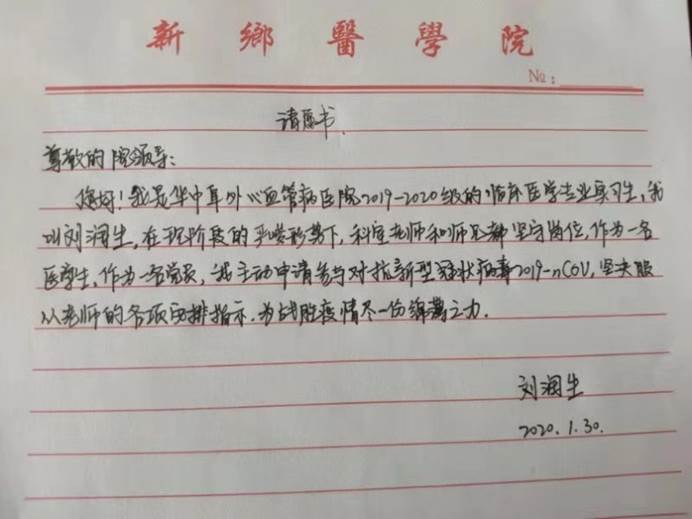 新鄉醫學院
No:
请愿书
尊敬的院领导:
您好!我是华中阜外心血管病医院2019-2020级的临床医学专业实习生,我
叫刘润生,在现阶段的严峻形势下,科室老师和师兄都坚守岗位,作为一名
医学生,作为一名党员,我主动申请参与对抗新型冠状病毒2019-nCOV,坚决服
从老师的各项安排指示.为战胜疫情尽一份绵薄之力.
刘润生
2020.1.30.